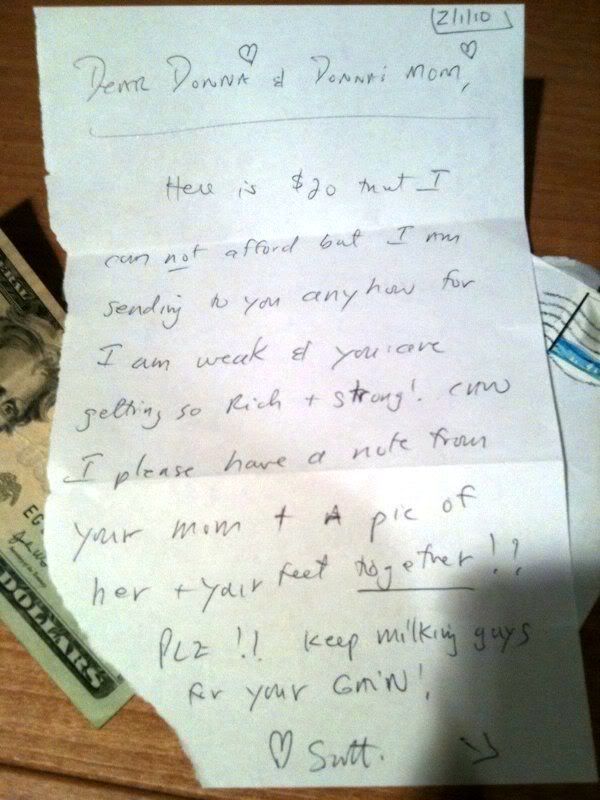 2/1/10
Dear Donna & Donna's mom,
Here is $20 that I
can not afford but I am
sending to you anyhow for
I am weak & you are
getting so Rich + strong! can
I please have a note from
your mom + A pic of
her + your feet together!!
PLZ!! keep milking guys
for your GAIN!
♡ Scott.
DOLLARS